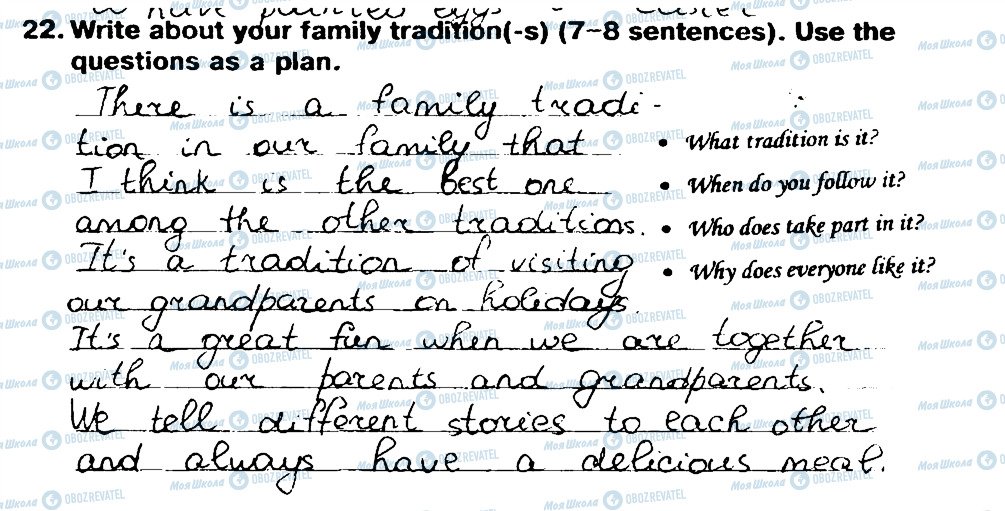 22. Write about your family tradition(-s) (7–8 sentences). Use the
questions as a plan.
There is a family tradi-
tion in our family that
I think is the best one
among the other traditions.
It's a tradition of visiting
our grandparents on holidays.
It's a great fun when we are together
with our parents and grandparents.
We tell different stories to each other
and always have a delicious meal.
• What tradition is it?
• When do you follow it?
• Who does take part in it?
• Why does everyone like it?
Моя Школа OBOZREVATEL